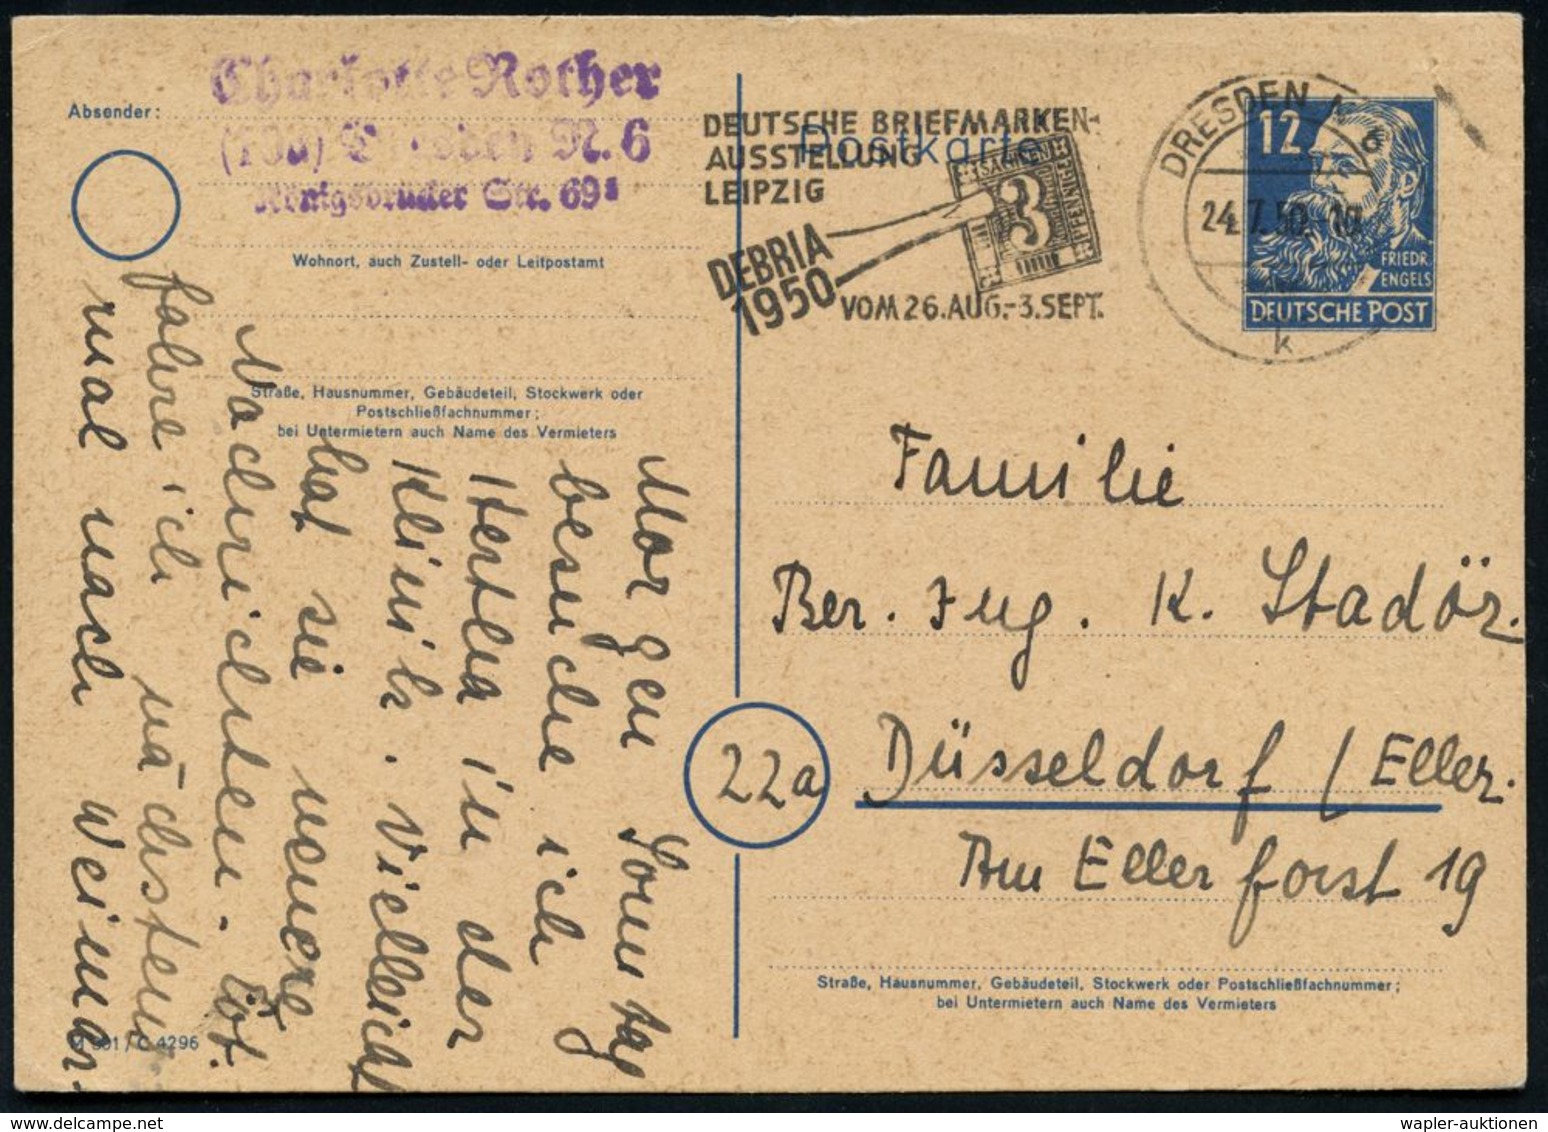 Absender:
Charlotte Rother
(10a) Dresden N. 6
Königsbrücker Str. 69a
Wohnort, auch Zustell- oder Leitpostamt
Straße, Hausnummer, Gebäudeteil, Stockwerk oder
Postschließfachnummer;
bei Untermietern auch Name des Vermieters
Morgen Sonntag
besuche ich
Hertha in der
Klinik. Vielleicht
hat sie neuere
Nachrichten.
fahre ich nächstens
mal nach Weimar.
M 301 / C 4296
DEUTSCHE BRIEFMARKEN-
AUSSTELLUNG
LEIPZIG
DEBRIA
1950
VOM 26. AUG.-3. SEPT.
SACHSEN
3
PFENNIGE
Postkarte
DRESDEN N 6
24.7.50.-10
k
12
FRIEDR.
ENGELS
DEUTSCHE POST
Familie
Ber. Ing. K. Stadör.
22a
Düsseldorf / Eller.
Am Eller forst 19
Straße, Hausnummer, Gebäudeteil, Stockwerk oder Postschließfachnummer;
bei Untermietern auch Name des Vermieters
wapler-auktionen